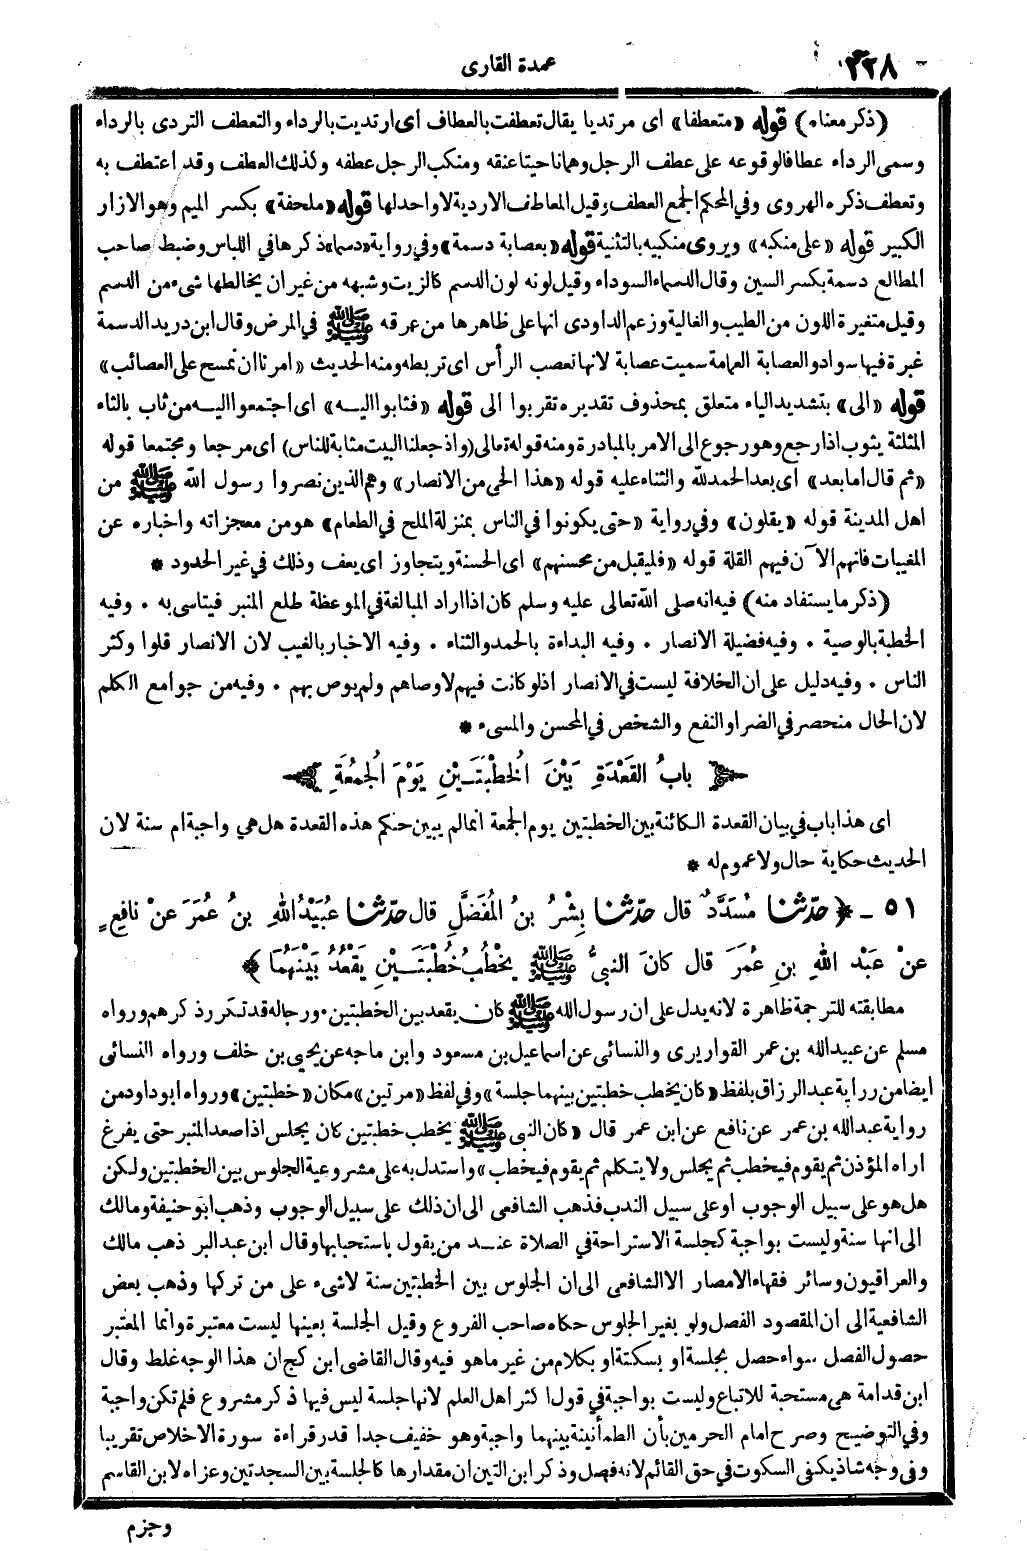 ٢٢٨
عمدة القارى
(ذكر معناه) قوله «متعطفا» اى مرتديا يقال تعطفت بالعطاف أى ارتديت بالرداء والتعطف التردى بالرداء
وسمى الرداء عطافا لوقوعه على عطف الرجل وهما ناحيتا عنقه ومنكب الرجل عطفه وكذلك العطف وقد اعتطف به
وتعطف ذكره الهروى وفي المحكم الجمع العطف وقيل المعاطف الاردية لا واحد لها قوله «ملحفة» بكسر الميم وهو الازار
الكبير قوله «على منكبه» ويروى منكبيه بالتثنية قوله «بعصابة دسمة» وفي رواية «دسماء» ذكرها في اللباس وضبط صاحب
المطالع دسمة بكسر السين وقال الدسماء السوداء وقيل لونه لون الدسم كالزيت وشبهه من غير ان يخالطها شىء من الدسم
وقيل متغيرة اللون من الطيب والغالية وزعم الداودى انها على ظاهرها من عرقه ﷺ في المرض وقال ابن دريد الدسمة
غبرة فيها سواد والعصابة العمامة سميت عصابة لانها تعصب الرأس اى تربطه ومنه الحديث «امرنا ان نمسح على العصائب»
قوله «الى» بتشديد الياء متعلق بمحذوف تقديره تقربوا الى قوله «فثابوا اليه» اى اجتمعوا اليه من ثاب بالثاء
المثلثة يثوب اذا رجع وهو رجوع الى الامر بالمبادرة ومنه قوله تعالى (واذ جعلنا البيت مثابة للناس) اى مرجعا ومجتمعا قوله
«ثم قال اما بعد» اى بعد الحمد لله والثناء عليه قوله «هذا الحى من الانصار» وهم الذين نصروا رسول الله ﷺ من
اهل المدينة قوله «يقلون» وفي رواية «حتى يكونوا في الناس بمنزلة الملح في الطعام» هو من معجزاته واخباره عن
المغيبات فانهم الآن فيهم القلة قوله «فليقبل من محسنهم» اى الحسنة ويتجاوز اى يعف وذلك في غير الحدود *
(ذكر ما يستفاد منه) فيه انه صلى الله تعالى عليه وسلم كان اذا اراد المبالغة في الموعظة طلع المنبر فيتاسى به . وفيه
الخطبة بالوصية . وفيه فضيلة الانصار . وفيه البداءة بالحمد والثناء . وفيه الاخبار بالغيب لان الانصار قلوا وكثر
الناس . وفيه دليل على ان الخلافة ليست في الانصار اذ لو كانت فيهم لاوصاهم ولم يوص بهم . وفيه من جوامع الكلم
لان الحال منحصر في الضر او النفع والشخص في المحسن والمسىء *
بابُ القَعْدَةِ بَيْنَ الخُطْبَتَيْنِ يَوْمَ الجُمُعَةِ
اى هذا باب في بيان القعدة الكائنة بين الخطبتين يوم الجمعة انما لم يبين حكم هذه القعدة هل هي واجبة ام سنة لان
الحديث حكاية حال ولا عموم له *
٥١ - ﴿حدّثنا مُسَدَّدٌ قال حدّثنا بِشْرُ بنُ المُفَضَّلِ قال حدّثنا عُبَيْدُ اللهِ بنُ عُمَرَ عنْ نافِعٍ
عنْ عَبْدِ اللهِ بنِ عُمَرَ قال كانَ النبيُّ ﷺ يَخْطُبُ خُطْبَتَيْنِ يَقْعُدُ بَيْنَهُمَا﴾
مطابقته للترجمة ظاهرة لانه يدل على ان رسول الله ﷺ كان يقعد بين الخطبتين . ورجاله قد تكرر ذكرهم ورواه
مسلم عن عبيد الله بن عمر القواريرى والنسائى عن اسماعيل بن مسعود وابن ماجه عن يحيى بن خلف ورواه النسائى
ايضا من رواية عبد الرزاق بلفظ «كان يخطب خطبتين بينهما جلسة» وفي لفظ «مرتين» مكان «خطبتين» ورواه ابو داود من
رواية عبد الله بن عمر عن نافع عن ابن عمر قال «كان النبى ﷺ يخطب خطبتين كان يجلس اذا صعد المنبر حتى يفرغ
اراه المؤذن ثم يقوم فيخطب ثم يجلس ولا يتكلم ثم يقوم فيخطب» واستدل به على مشروعية الجلوس بين الخطبتين ولكن
هل هو على سبيل الوجوب او على سبيل الندب فذهب الشافعى الى ان ذلك على سبيل الوجوب وذهب ابو حنيفة ومالك
الى انها سنة وليست بواجبة كجلسة الاستراحة في الصلاة عند من يقول باستحبابها وقال ابن عبد البر ذهب مالك
والعراقيون وسائر فقهاء الامصار الا الشافعى الى ان الجلوس بين الخطبتين سنة لا شىء على من تركها وذهب بعض
الشافعية الى ان المقصود الفصل ولو بغير الجلوس حكاه صاحب الفروع وقيل الجلسة بعينها ليست معتبرة وانما المعتبر
حصول الفصل سواء حصل بجلسة او بسكتة او بكلام من غير ما هو فيه وقال القاضى ابن كج ان هذا الوجه غلط وقال
ابن قدامة هى مستحبة للاتباع وليست بواجبة في قول اكثر اهل العلم لانها جلسة ليس فيها ذكر مشروع فلم تكن واجبة
وفي التوضيح وصرح امام الحرمين بأن الطمأنينة بينهما واجبة وهو خفيف جدا قدر قراءة سورة الاخلاص تقريبا
وفى وجه شاذ يكفى السكوت في حق القائم لانه فصل وذكر ابن التين ان مقدارها كالجلسة بين السجدتين وعزاه لابن القاسم
وجزم